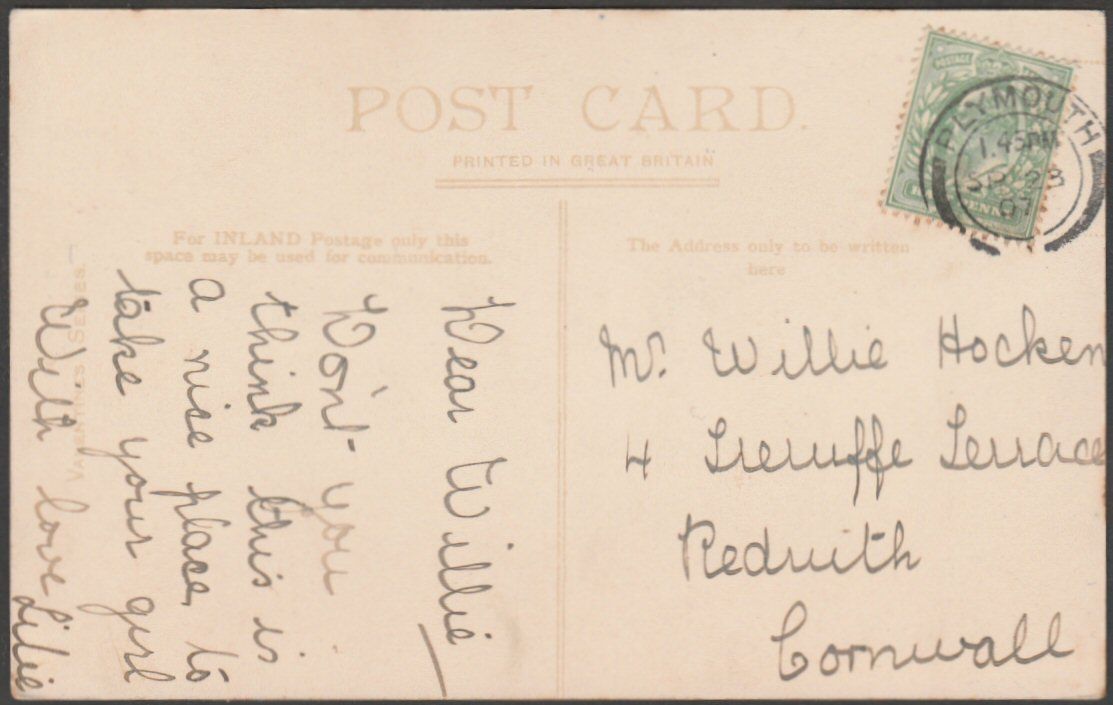 POST CARD.
PRINTED IN GREAT BRITAIN
For INLAND Postage only this
space may be used for communication.
The Address only to be written
here
PLYMOUTH
1.45PM
SP 28
07
POSTAGE
VALENTINES SERIES.
Dear Willie
Don't you
think this is
a nice place, to
take your girl
With love
Lilie
Mr. Willie Hocken
4 Treruffe Terrace
Redruith
Cornwall